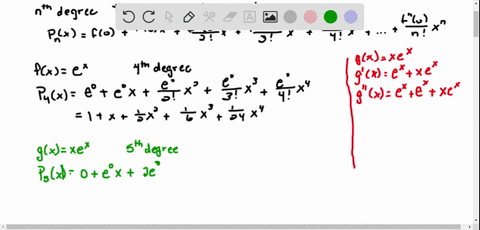 nth degree
Pₙ(x) = f(0) + x + x + x + ... + fⁿ(0)/n! xⁿ
f(x) = eˣ 4th degree
P₄(x) = e⁰ + e⁰x + e⁰/2! x² + e⁰/3! x³ + e⁰/4! x⁴
= 1 + x + 1/2 x² + 1/6 x³ + 1/24 x⁴
g(x) = xeˣ 5th degree
P₅(x) = 0 + e⁰x + 2e⁰
g(x) = xeˣ
g'(x) = eˣ + xeˣ
g"(x) = eˣ + eˣ + xeˣ